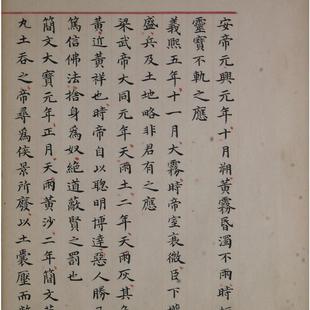 安帝元興元年十月朔黃霧昏濁不雨時
靈寶不軌之應
義熙五年十一月大霧時帝室衰微臣下
盛兵及土地略非君有之應
梁武帝大同元年天雨土二年天雨灰其
黃近黃祥也時帝自以聰明博達惡人勝
篤信佛法捨身為奴絕道蔽賢之罰也
簡文大寶元年正月天雨黃沙二年簡文
丸土吞之帝尋為侯景所廢以土囊壓而